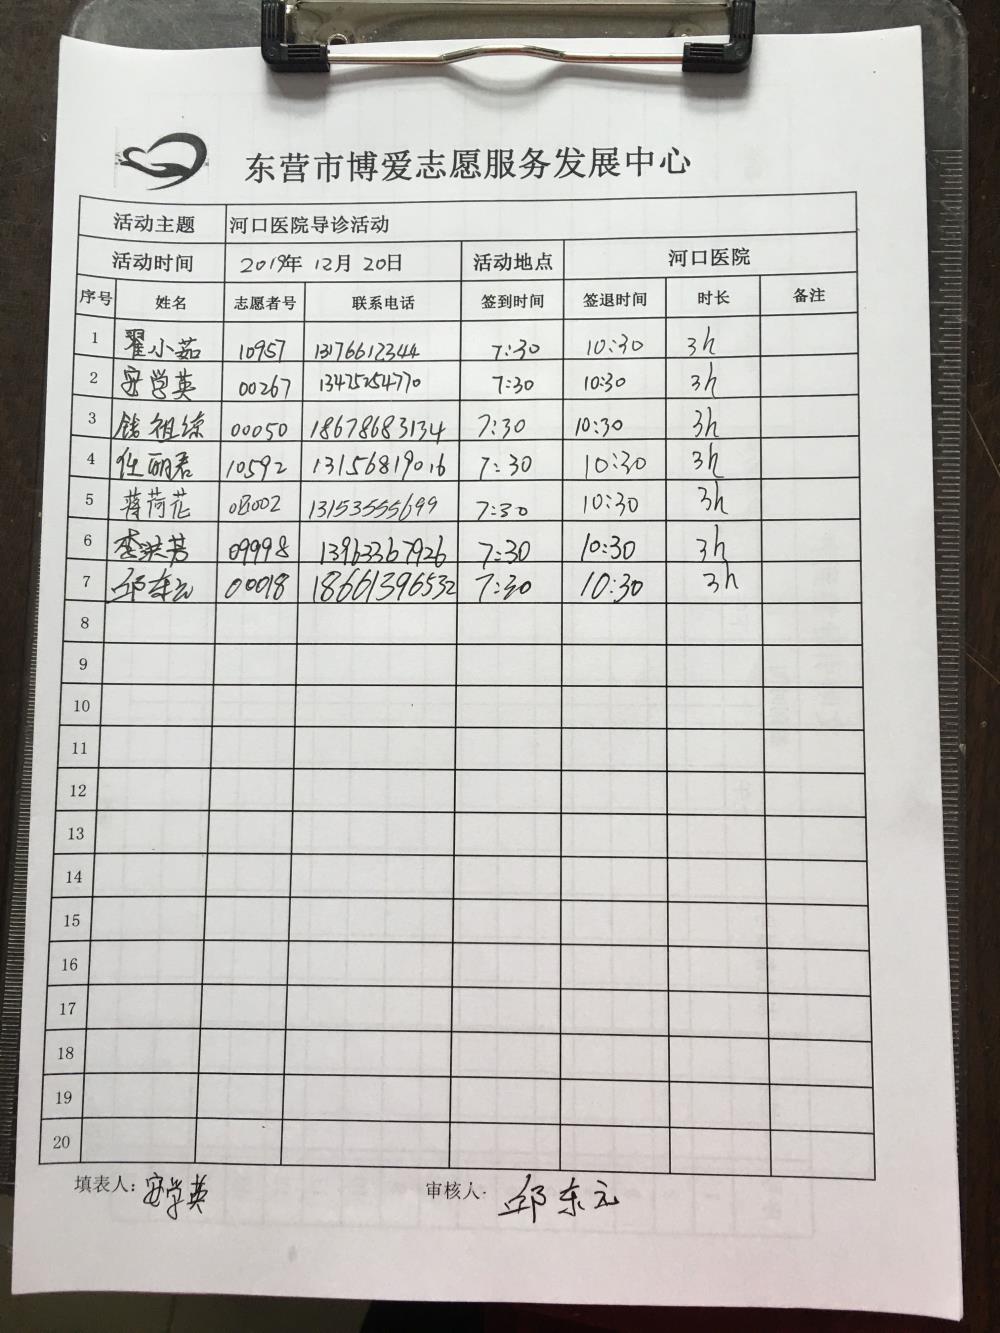 东营市博爱志愿服务发展中心
活动主题 河口医院导诊活动
活动时间 2019年 12月 20日 活动地点 河口医院
序号 姓名 志愿者号 联系电话 签到时间 签退时间 时长 备注
1 翟小茹 10957 13176612344 7:30 10:30 3h
2 安学英 00267 13475254770 7:30 10:30 3h
3 钱祖琼 00050 18678683134 7:30 10:30 3h
4 任丽君 10592 13156819016 7:30 10:30 3h
5 蒋荷花 13153555699 7:30 10:30 3h
6 李洪芳 09998 13963367926 7:30 10:30 3h
7 邱东云 00018 18661396532 7:30 10:30 3h
8
9
10
11
12
13
14
15
16
17
18
19
20
填表人: 安学英 审核人: 邱东云